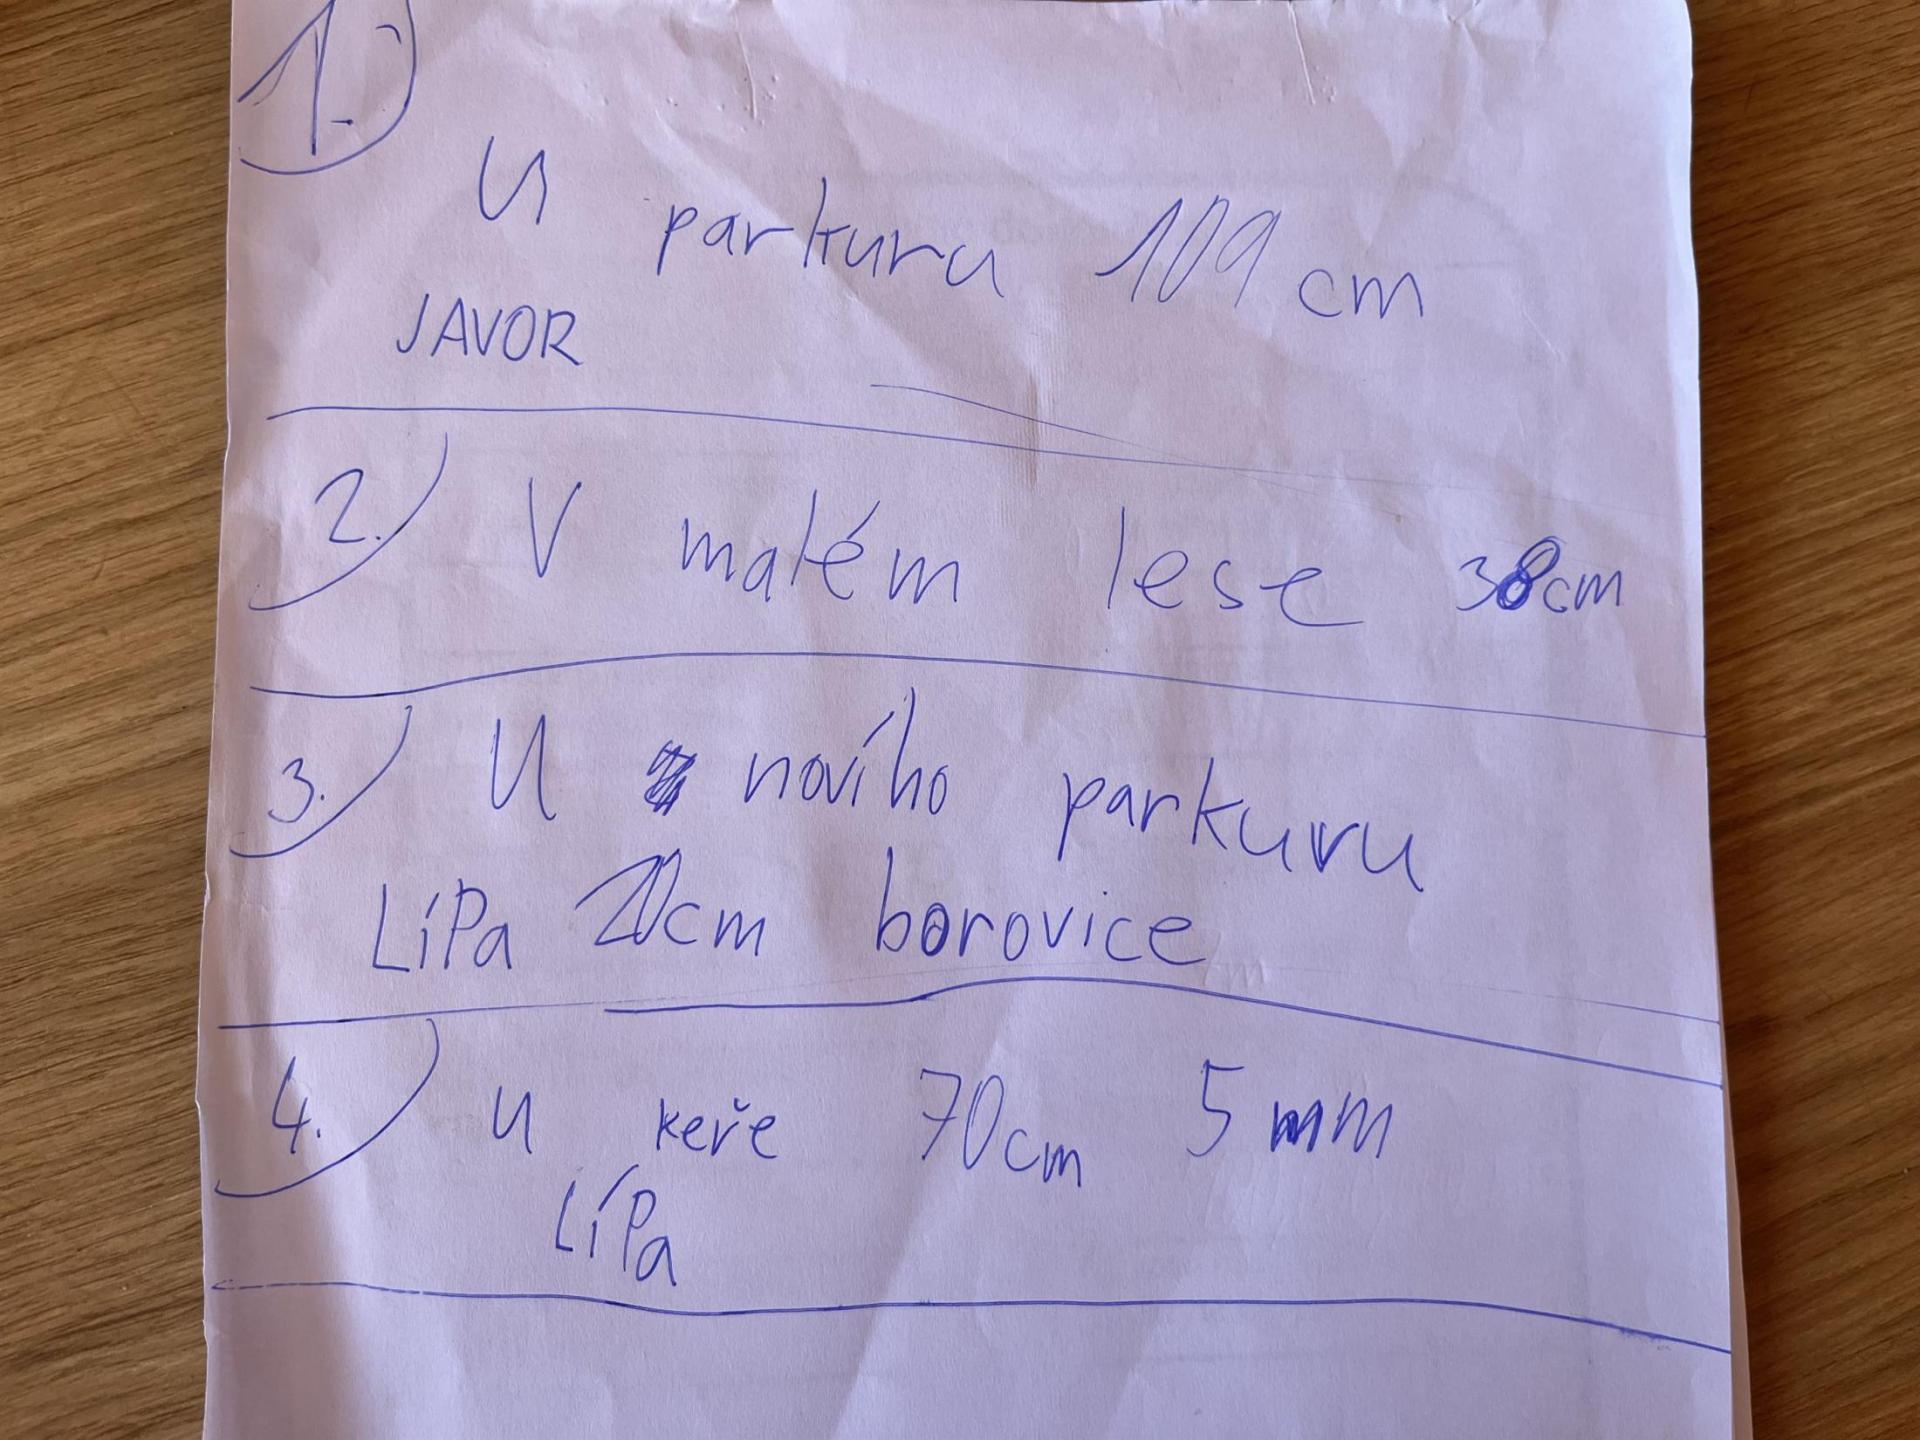 1.
U parkuru 109 cm
JAVOR
2. V malém lese 38cm
3. U novího parkuru
LíPa 20cm borovice
4. U keře 70cm 5 mm
LíPa